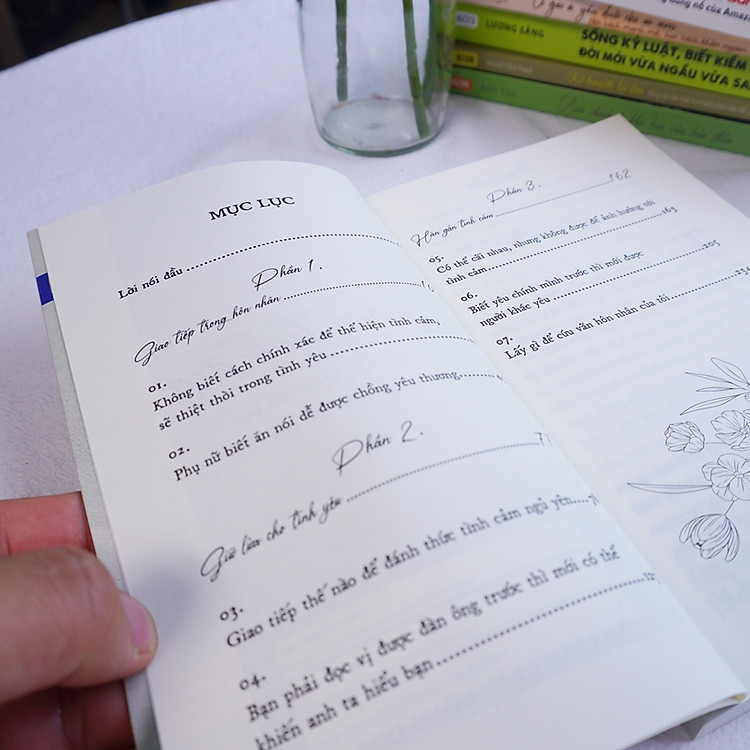 MỤC LỤC
Lời nói đầu
Phần 1.
Giao tiếp trong hôn nhân
01.
Không biết cách chính xác để thể hiện tình cảm,
sẽ thiệt thòi trong tình yêu
02.
Phụ nữ biết ăn nói dễ được chồng yêu thương
Phần 2.
Giữ lửa cho tình yêu
03.
Giao tiếp thế nào để đánh thức tình cảm ngủ yên
04.
Bạn phải đọc vị được đàn ông trước thì mới có thể
khiến anh ta hiểu bạn
Phần 3.
Hàn gắn tình cảm 162
05.
Có thể cãi nhau, nhưng không được để ảnh hưởng tới
tình cảm 163
06.
Biết yêu chính mình trước thì mới được
người khác yêu 205
07.
Lấy gì để cứu vãn hôn nhân của tôi
của Amazon
LƯƠNG SẢNG
SỐNG KỶ LUẬT, BIẾT KIỀM
ĐỜI MỚI VỪA NGẦU VỪA SA